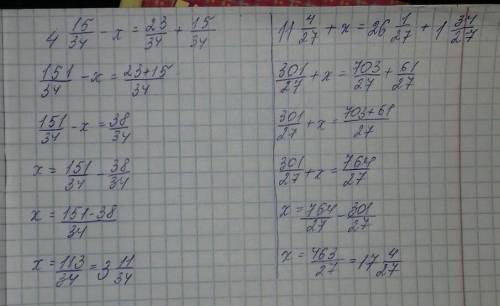 4 15/34 - x = 23/34 + 15/34
151/34 - x = 23+15/34
151/34 - x = 38/34
x = 151/34 - 38/34
x = 151-38/34
x = 113/34 = 3 11/34
11 4/27 + x = 26 1/27 + 1 34/27
301/27 + x = 703/27 + 61/27
301/27 + x = 703+61/27
301/27 + x = 764/27
x = 764/27 - 301/27
x = 463/27 = 17 4/27